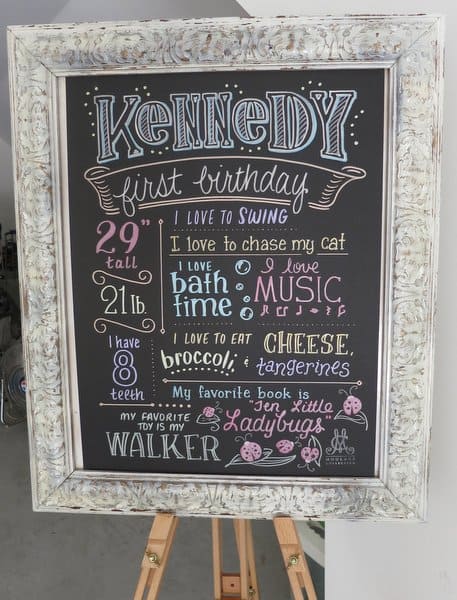 KENNEDY
first birthday
29"
tall
21 lb
I have
8
teeth
I LOVE TO SWING
I love to chase my cat
I LOVE
bath
time
I love
MUSIC
I LOVE TO EAT
broccoli, & CHEESE,
tangerines
My favorite book is
"Ten Little
Ladybugs"
MY FAVORITE
TOY IS MY
WALKER